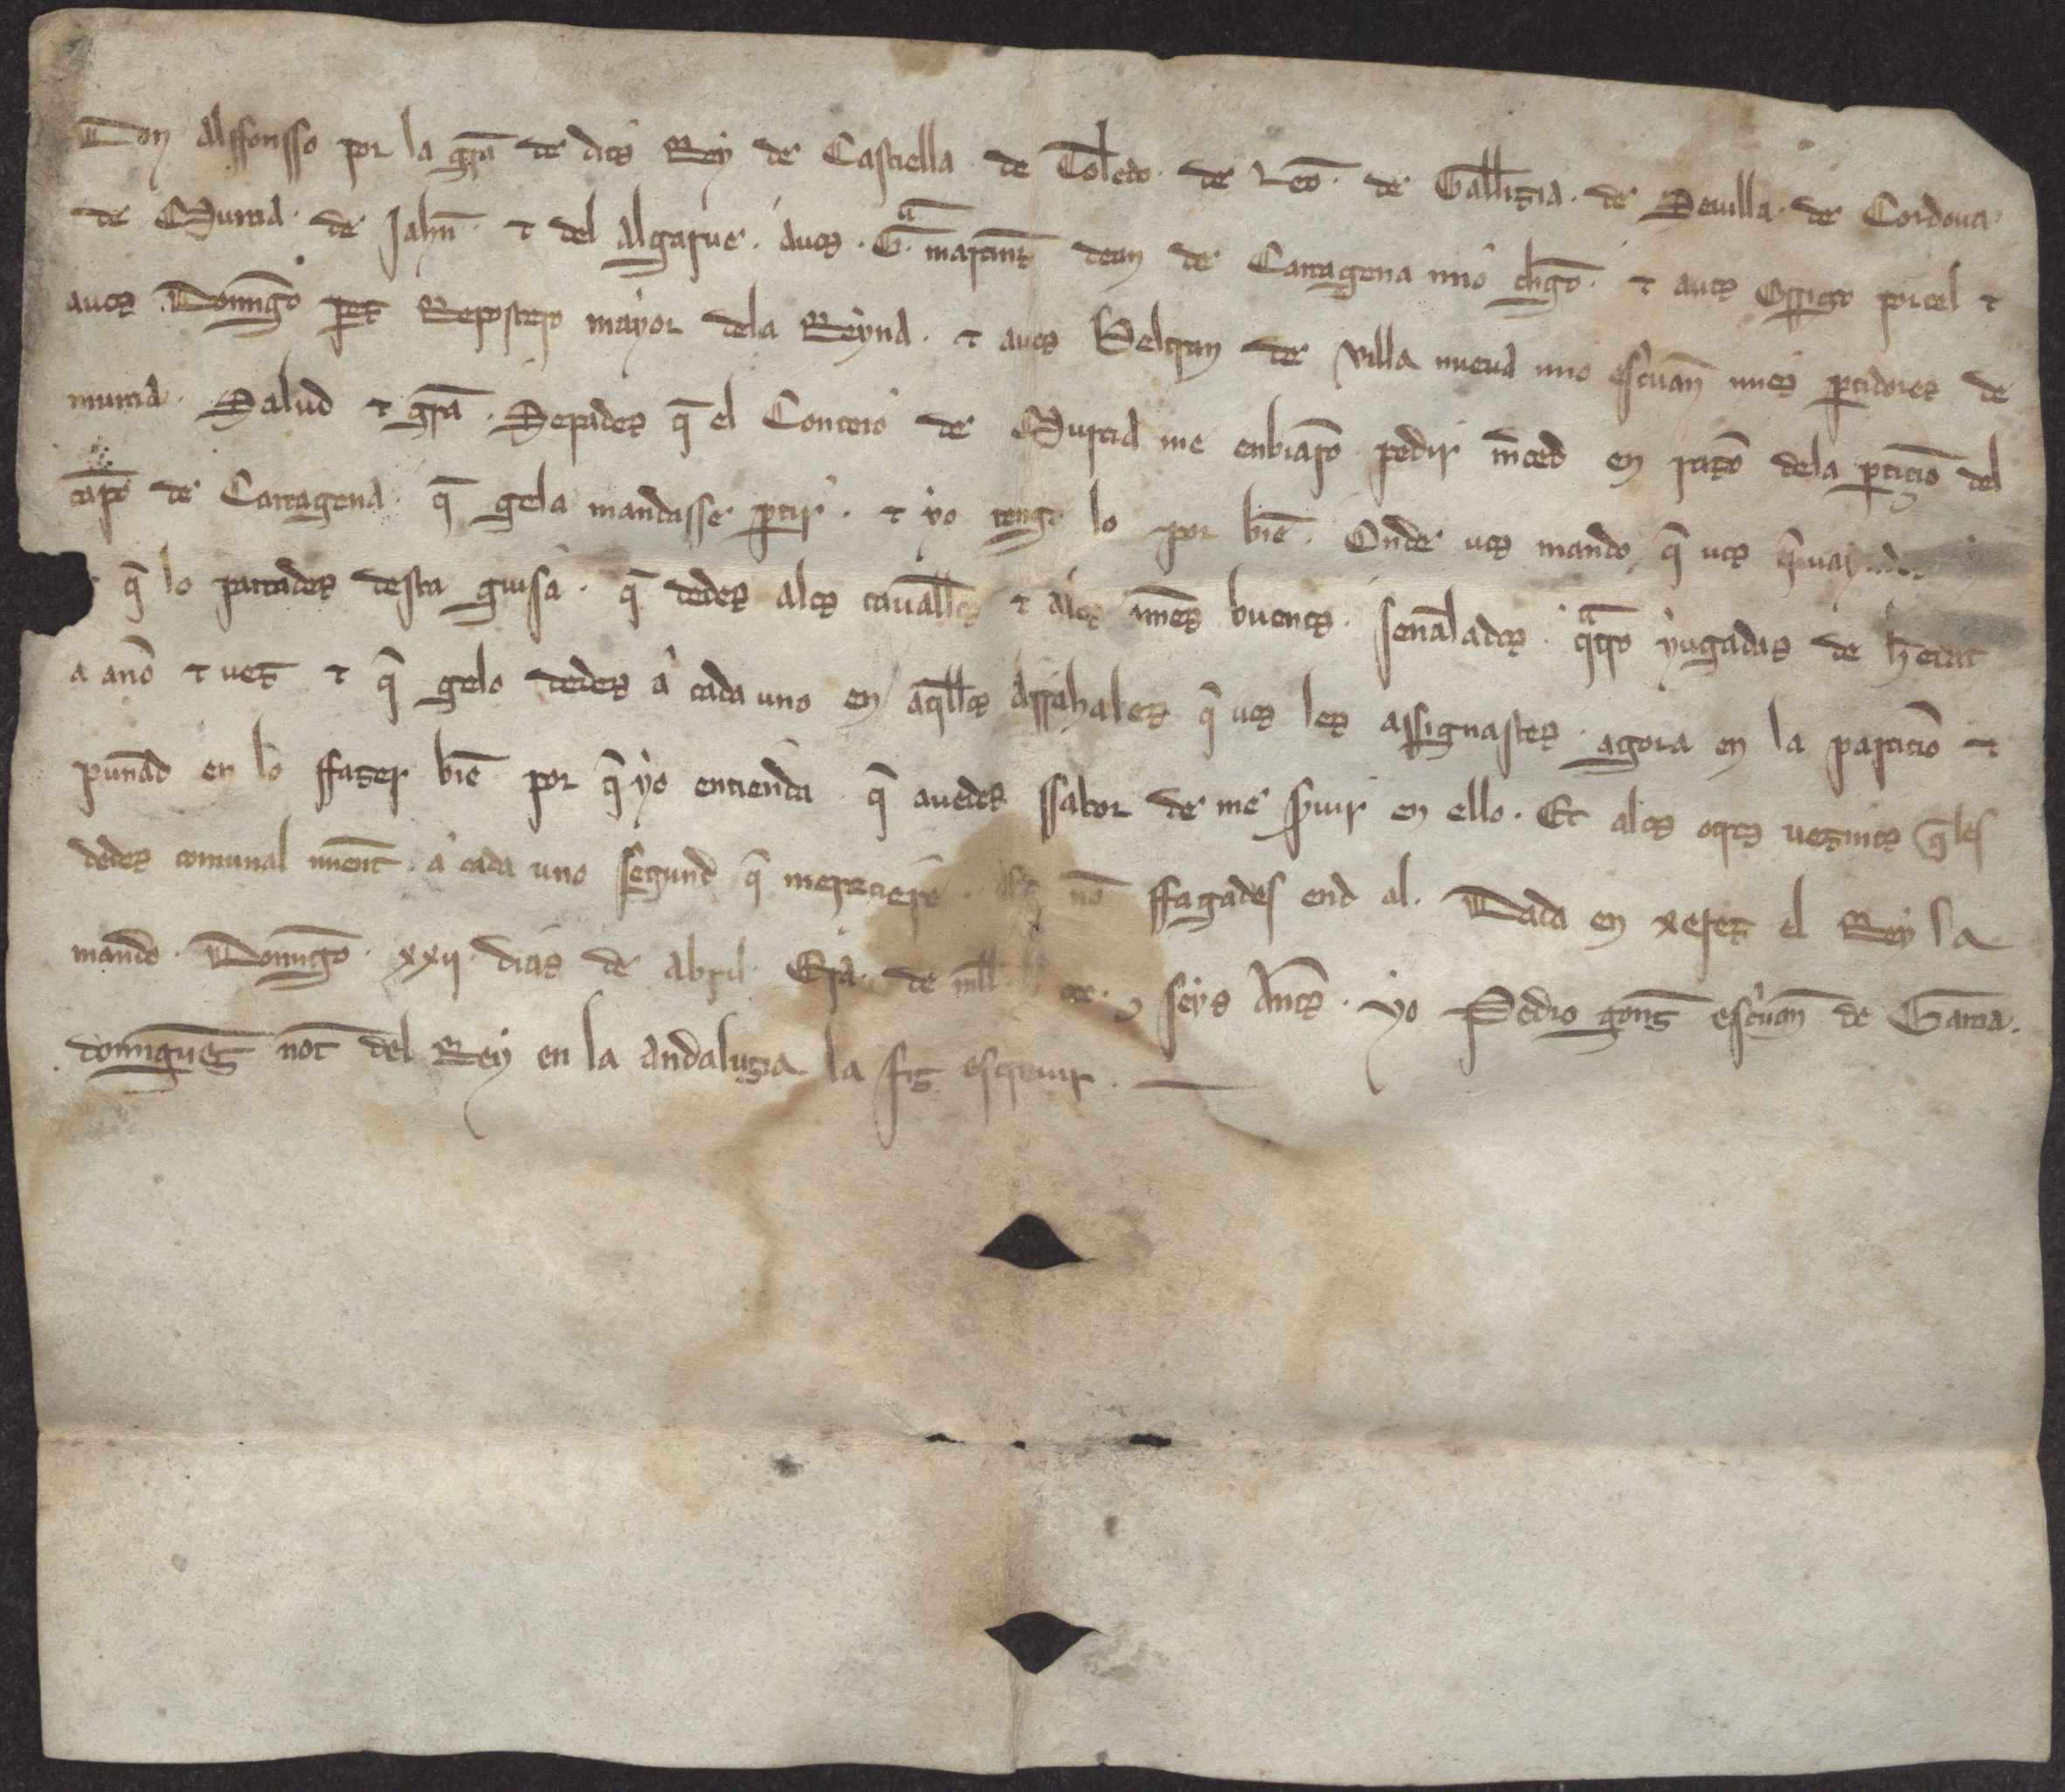 Don Alffonsso por la gr̄a de dios Rey de Castiella de Toledo. de Leō. de Gallizia. de Seuilla. de Cordoua.
de Murcia. de Iahn̄. ⁊ del Algarue. auos. G.ª martinz̄ dean de Cartagena mio cl̄igo. ⁊ auos Orrigo porcel ⁊
auos Domīgo perez Repostero mayor dela Reyna. ⁊ auos Beltran de Villa nueua mio esc̄uan̄ mios ꝑtidores de
murcia. Salud ⁊ gr̄a. Sepades q̄ el Conceio de Murcia me enbiarō pedir m̄ced en razō dela ꝑticiō del
cāpo de Cartagena. q̄ gela mandasse ꝑtir. ⁊ yo tengo lo por biē. Onde uos mando q̄ uos
q̄ lo partades desta guisa. q̄ dedes alos cauall̄os ⁊ alos om̄es buenos. sen̄alados. qᵃtro yugadas de h̄edat
a an̄o ⁊ uez ⁊ q̄ gelo dedes a cada uno en aq̄llos Arrahales q̄ uos les assignastes agora en la particiō ⁊
pun̄ad en lo ffazer biē por q̄ yo entienda q̄ auedes ssabor de me s̄uir en ello. Et alos otros uezinos q̄ les
dedes comunal mient̄. a cada uno segund q̄ mereciere. nō ffagades end al. Dada en xerez el Rey la
mando. Domīgo. xxij. dias de abril. Era. de mill ccc. ⁊ seys An̄os. yo Pedro gonz̄ esc̄uan̄ de Garcia.
domīguez not̄ del Rey en la andaluzia la fiz escreuir.